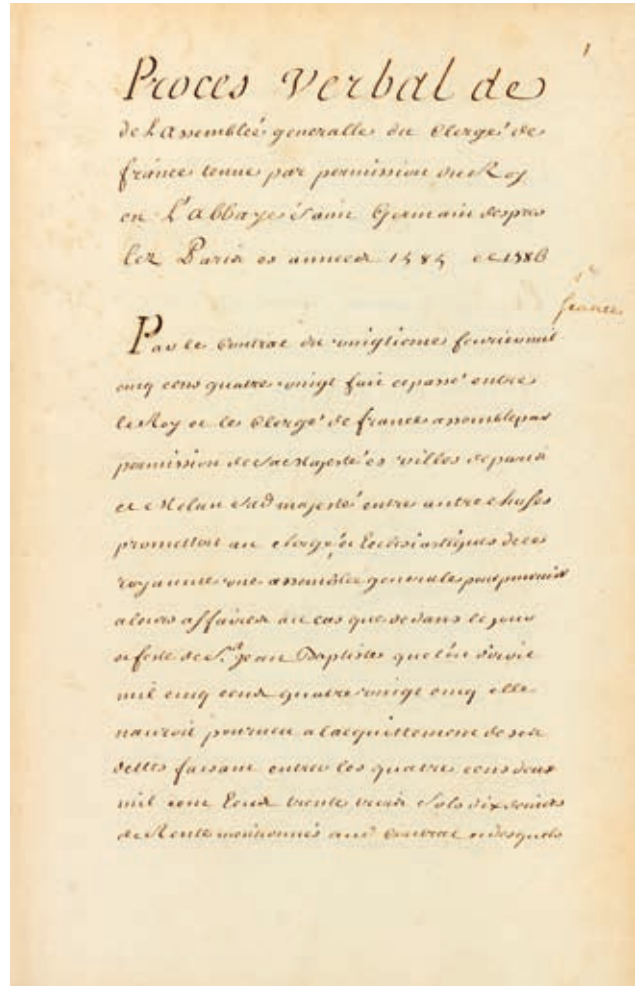 1
Proces verbal de
de L'assemblée generalle du Clergé de
france tenue par permission du Roy
en L'abbaye Saint Germain despres
lez Paris es années 1585 et 1586
france
Par le Contrat du vingtieme feurier mil
cinq cens quatre vingt fait et passé entre
le Roy et le Clergé de france assemblé par
permission de Sa Majesté es villes de paris
et Melun Sad majesté entre autre choses
promettoit au clergé et Ecclesiastiques de ce
royaume une assemblée generale pour pourvoir
a leurs affaires au cas que dedans le jour
et feste de St. Jean Baptiste que l'on diroit
mil cinq cens quatre vingt cinq elle
n'auroit pourueu a lacquittement de ses
dettes faisant entrer les quatre cens deux
mil cent Ecus trente trois Sols dix deniers
de Rente mentionnés aud Contrat